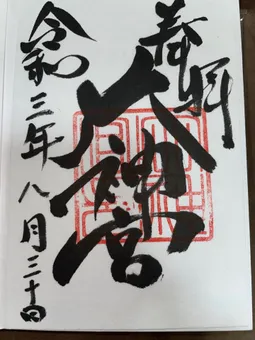 奉拝
大神宮
令和三年八月二十日